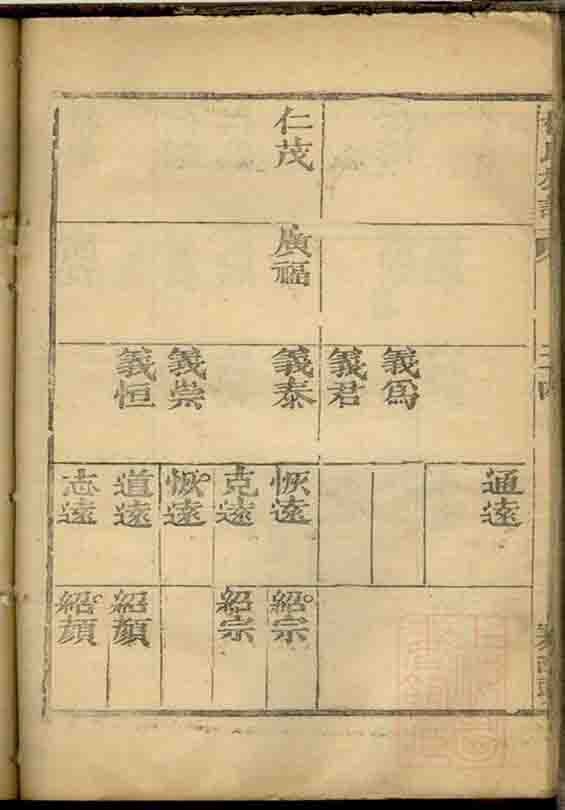 仁茂
廣福
義爲
義君
義泰
義崇
義恒
通遠
恢遠
克遠
恢遠
道遠
志遠
紹宗
紹宗
紹顏
紹顏